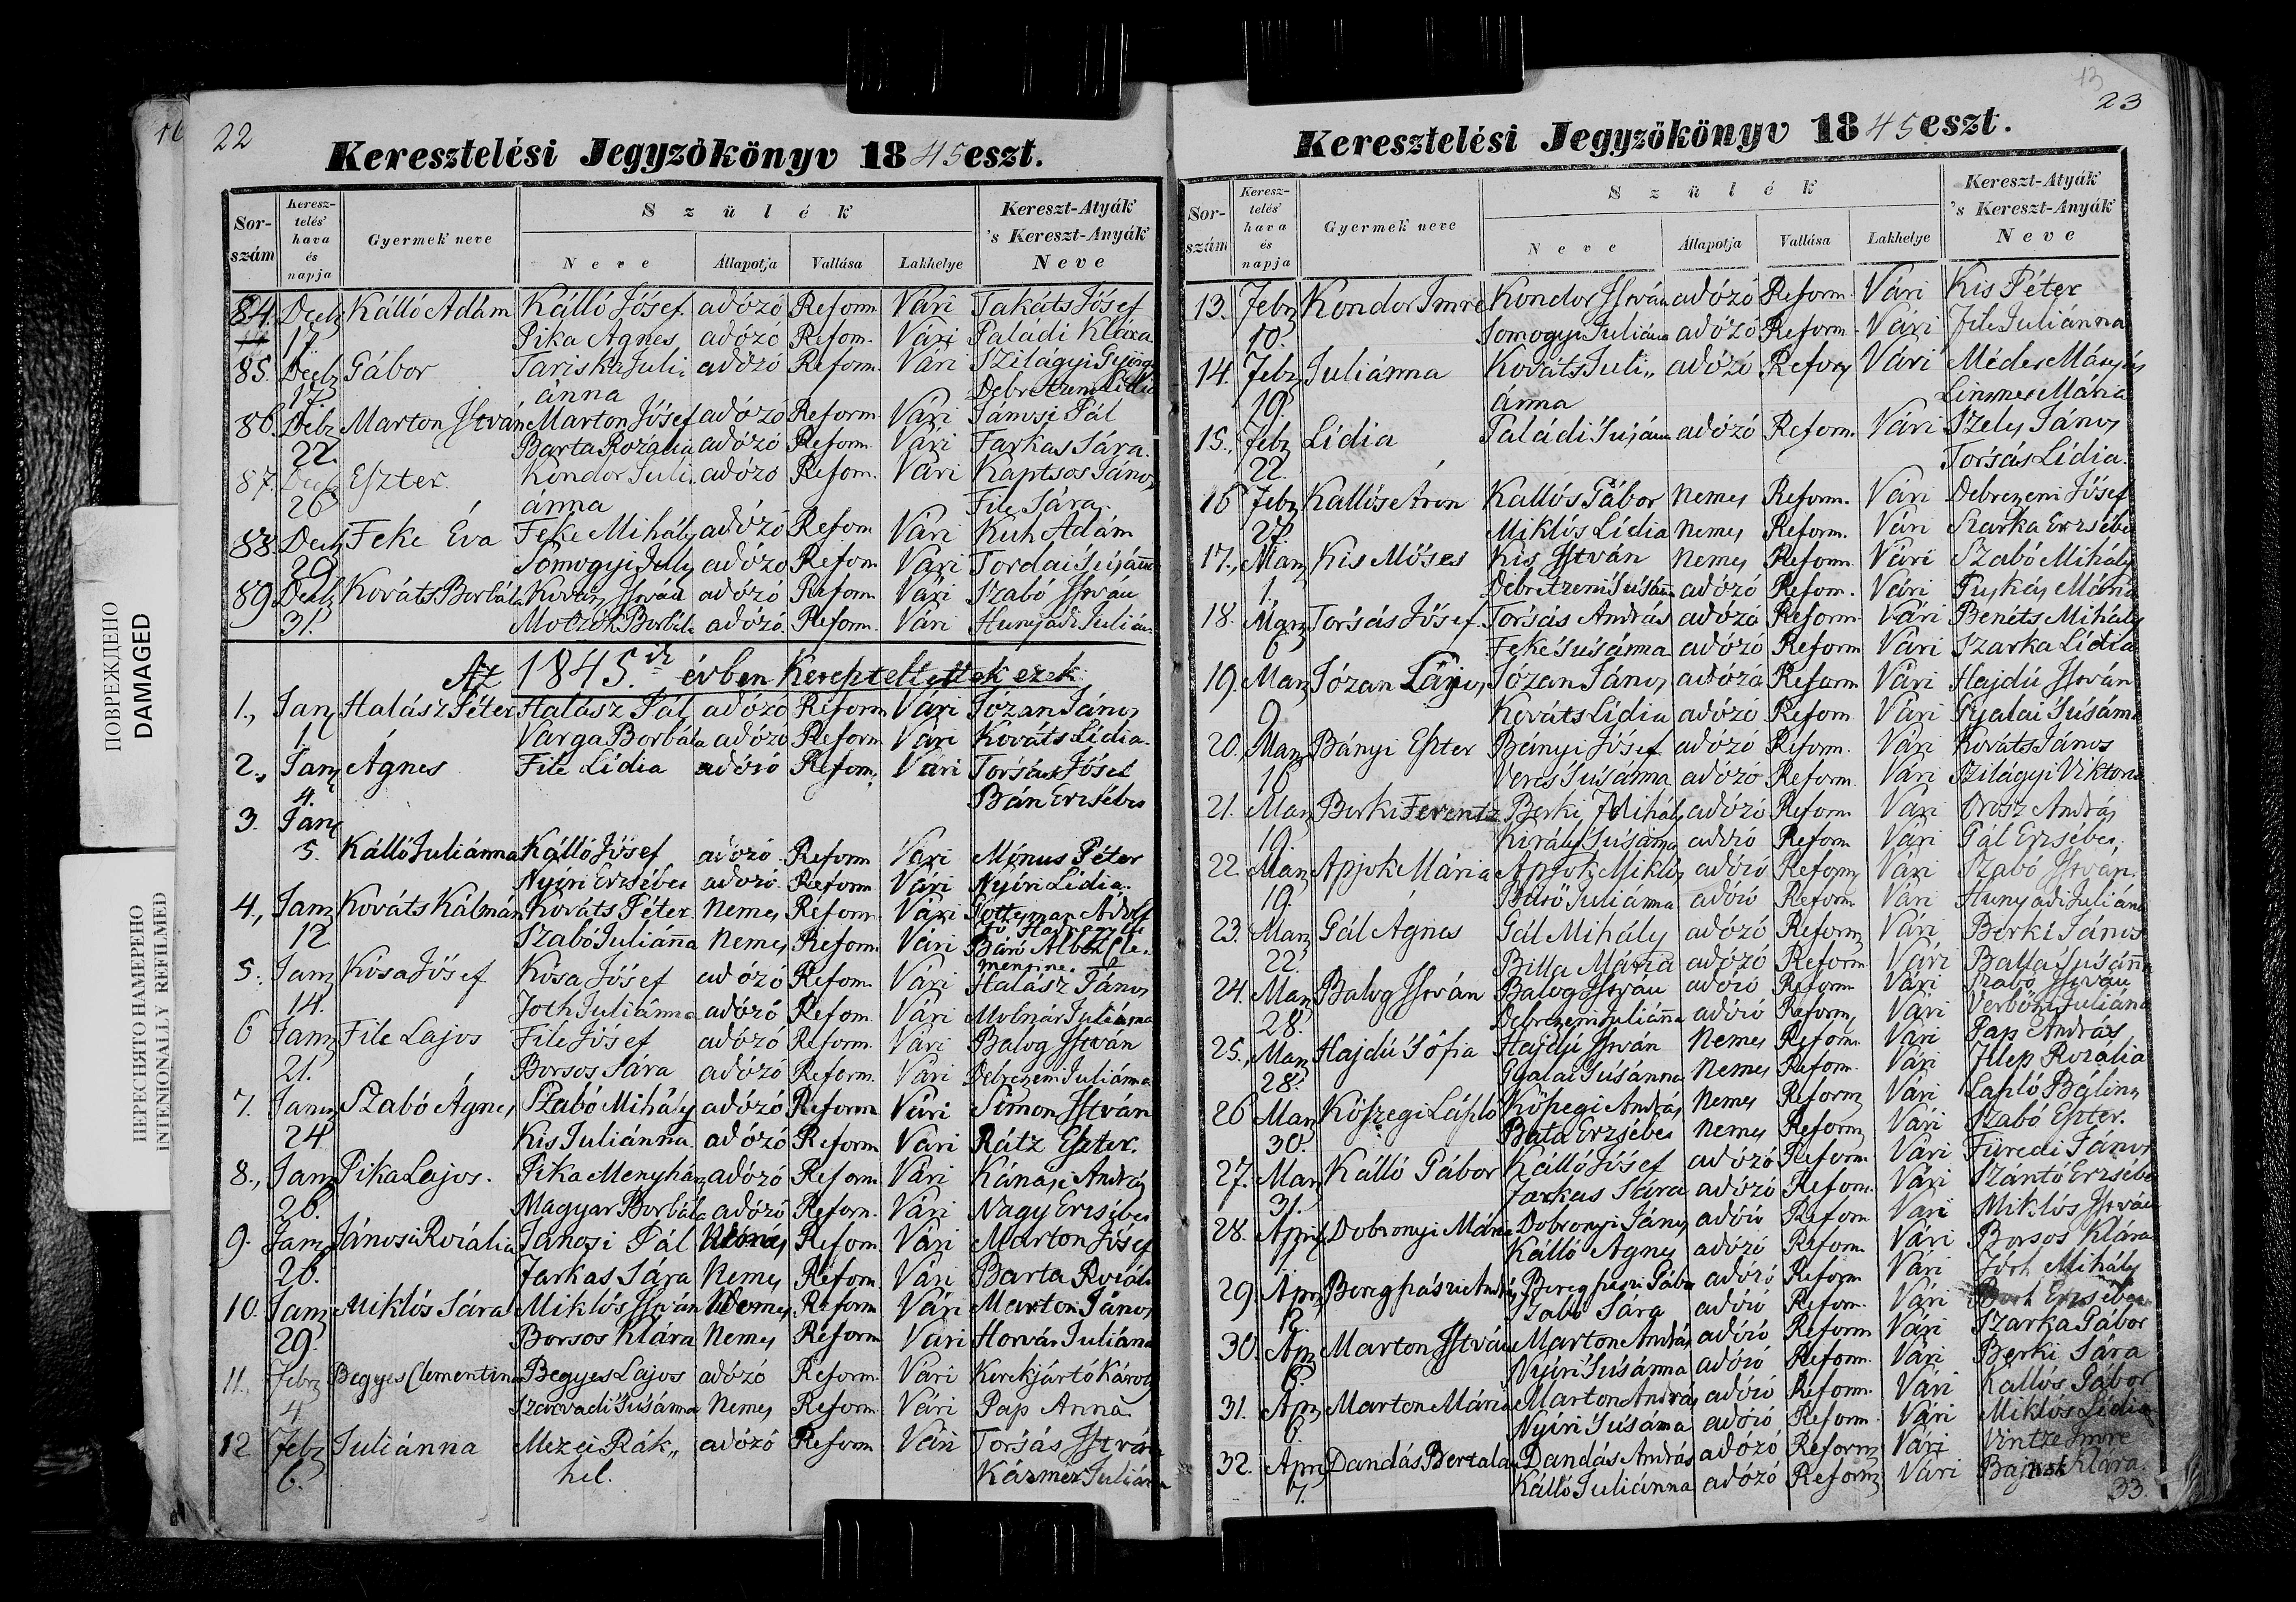 16
22
Keresztelési Jegyzőkönyv 1845 eszt.
Sor-szám
Keresz-telés' hava és napja
Gyermek neve
Szülék
Neve
Állapotja
Vallása
Lakhelye
Kereszt-Atyák
's Kereszt-Anyák
Neve
84. Decbr Kálló Adám Kálló Jósef adózó Reform. Vári Takáts Jósef
17 Pika Agnes adózó Reform. Vári Paladi Klára
85. Decbr Gábor Tariska Juli- adózó Reform. Vári Szilágyi György
17. ánna Debretzeni Lídia
86. Debr Marton István Marton Jósef adózó Reform Vári Jánosi Pál
22. Barta Rozália adózó Reform. Vári Farkas Sára.
87. Eszter Kondor Juli- adózó Reform. Vári Kaptsos János
26 ánna File Sára
88 Decbr Feke Éva Feke Mihály adózó Reform Vári Kuh Adám
29 Somogyi July adózó Reform Vári Tordai Susánna
89 Decbr Kováts Borbála Kováts István adózó Reform Vári Szabó István
31. Motzok Borbála adózó. Reform. Vári Hunyadi Julián
Az 1845.ik évben Kereszteltettek ezek:
1., Jan Halász Péter Halász Pál adózó Reform Vári Józan János
1 Varga Borbála adózó Reform Vári Kováts Lídia.
2., Jan Ágnes File Lídia adózó Reform. Vári Torsás Jósef
4. Bán Erzsébet
3. Jan
5. Kálló Juliánna Kálló Jósef adózó Reform Vári Minus Péter
Nyíri Erzsébet adózó Reform Vári Nyíri Lídia.
4., Jan Kováts Kálmán Kováts Péter Nemes Reform Vári Adolf
12 Szabó Juliánna Nemes Reform Vári Báró Cle-
mentine
5. Jan Kósa Jósef Kósa Jósef adózó Reform Vári Halász János
14. Joth Juliánna adózó Reform. Vári Molnár Juliánna
6 Jan File Lajos File Jósef adózó Reform. Vári Balog István
21. Borsos Sára adózó Reform. Vári Debrezeni Juliánna
7. Jan Szabó Ágnes Szabó Mihály adózó Reform Vári Simon István
24 Kis Juliánna adózó Reform Vári Rátz Eszter.
8., Jan Pika Lajos. Pika Menyhár adózó Reform Vári Kánási András
26. Magyar Borbála adózó Reform. Vári Nagy Erzsébet
9. Jan Jánosi Rozália Janosi Pál Nemes Reform Vári Marton Jósef
26. Farkas Sára Nemes Reform Vári Barta Rozál
10. Jan Miklós Sára Miklós István Nemes Reform Vári Marton János
29. Borsos Klára Nemes Reform Vári Horvár Juliánna
11., Febr Begyes Clementina Begyes Lajos adózó Reform Vári Kerekjártó Károly
4 Szarvadi Susánna Nemes Reform Vári Pap Anna
12 Febr Juliánna Mezei Rák,, adózó Reform Vári Torsás István
6. hel. Kázmér Juliánna
13
23
Keresztelési Jegyzőkönyv 1845 eszt.
Sor-szám
Keresz-telés' hava és napja
Gyermek neve
Szülék
Neve
Állapotja
Vallása
Lakhelye
Kereszt-Atyák
's Kereszt-Anyák
Neve
13. Febr Kondor Imre Kondor István adózó Reform. Vári Kis Péter
10. Somogyi Juliánna adózó Reform Vári File Juliánna
14. Febr Juliánna Kováts Juli,, adózó Reform Vári Méder Mátyás
19. ánna Linsner Mária
15. Febr Lídia Paládi Susánna adózó Reform. Vári Szely János
22. Torsás Lídia.
16 Febr Kallós Áron Kallós Gábor Nemes Reform. Vári Debrezeni Jósef
27. Miklós Lídia Nemes Reform. Vári Szarka Erzsébet
17., Mar Kis Móses Kis István Nemes Reform Vári Szabó Mihály
1. Debretzeni Susánna adózó Reform. Vári Puskás Mária
18. Mar Torsás Jósef. Torsás András adózó Reform Vári Benéts Mihály
6 Feke Susánna adózó Reform Vári Szarka Lídia
19. Mar Józan Lajos Józan János adózó Reform Vári Hajdú István
9 Kováts Lídia adózó Reform. Vári Gyalai Susánna
20. Mar Bányi Eszter Bányi Jósef adózó Reform. Vári Kováts János
16 Veres Susánna adózó Reform. Vári Szilágyi Viktoria
21. Mar Berki Ferentz Berki Mihály adózó Reform Vári Orosz András
19. Király Susánna adózó Reform Vári Gál Erzsébet
22. Mar Apjok Mária Apjok Miklós adózó Reform Vári Szabó István.
19. Juliánna adózó Reform Vári Hunyadi Juliánna
23. Mar Gál Agnes Gál Mihály adózó Reform Vári Berki János
22. Billa Mária adózó Reform Vári Balla Susánna
24. Mar Balog István Balog István adózó Reform Vári Szabó István
28. Debrezeni Juliánna adózó Reform Vári Verbői Juliánna
25., Mar Hajdú Sófia Hajdú István Nemes Reform Vári Pap András
28. Gyalai Susánna Nemes Reform Vári Filep Rozália
26 Mar Kőszegi László Kőszegi András Nemes Reform Vári László Bálint
30. Bata Erzsébet Nemes Reform Vári Szabó Eszter.
27. Mar Kálló Gábor Kálló Jósef adózó Reform Vári Füredi János
31. Farkas Sára adózó Reform. Vári Szántó Erzsébet
28. April Dobronyi Mária Dobronyi János adózó Reform Vári Miklós István
1. Kálló Agnes adózó Reform Vári Borsos Klára
29. Apr Bereghászi András Bereghászi Gábor adózó Reform Vári Jóth Mihály
Szabó Sára adózó Reform. Vári Erzsébet
30. Apr Marton István Marton András adózó Reform Vári Szarka Gábor
6. Nyíri Susánna adózó Reform. Vári Berki Sára
31. Apr Marton Mária Marton András adózó Reform. Vári Kallós Gábor
6. Nyíri Susánna adózó Reform. Vári Miklós Lídia
32. Apr Dandás Bertalan Dandás András adózó Reform Vári Vintze Imre
7. Kálló Juliánna adózó Reform Vári Klára.
33.
ПОВРЕЖДЕНО
DAMAGED
ПЕРЕСНЯТО НАМЕРЕНО
INTENIONALLY REFILMED